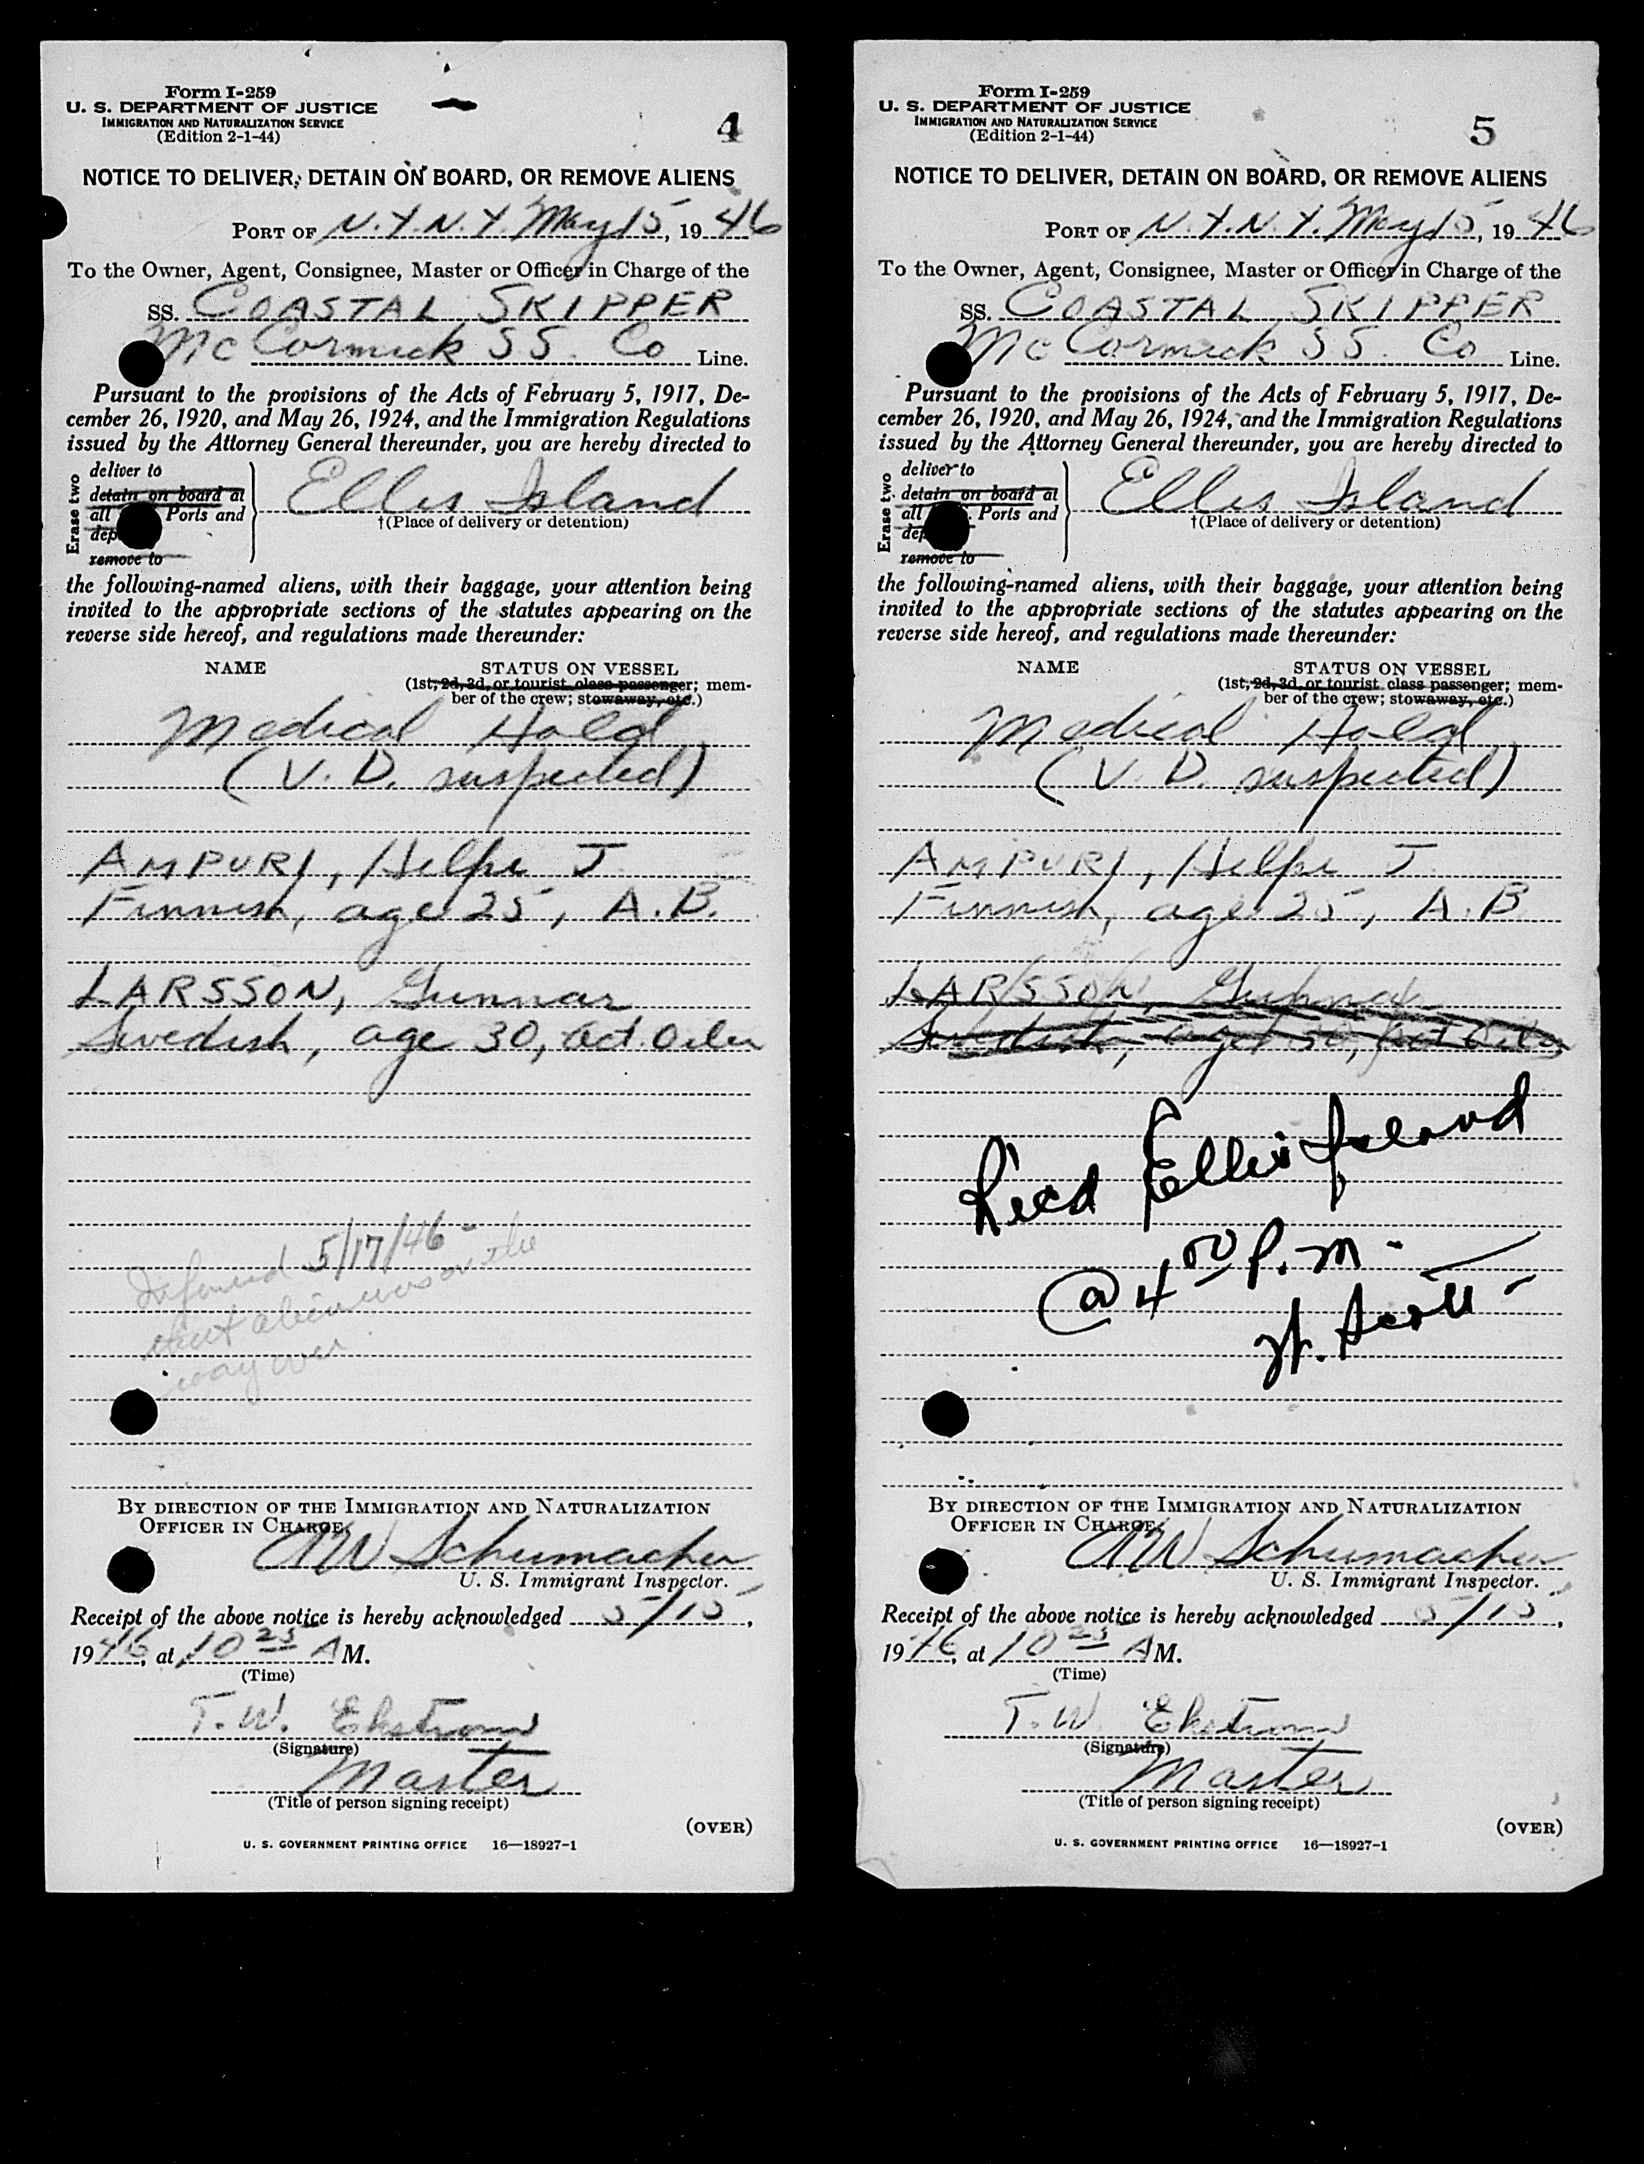 Form I-259
U. S. DEPARTMENT OF JUSTICE
IMMIGRATION AND NATURALIZATION SERVICE
(Edition 2-1-44)
4
NOTICE TO DELIVER, DETAIN ON BOARD, OR REMOVE ALIENS
PORT OF N.Y.N.Y. May 15, 1946
To the Owner, Agent, Consignee, Master or Officer in Charge of the
SS. COASTAL SKIPPER
McCormick SS. Co Line.
Pursuant to the provisions of the Acts of February 5, 1917, De-
cember 26, 1920, and May 26, 1924, and the Immigration Regulations
issued by the Attorney General thereunder, you are hereby directed to
Erase two
deliver to
detain on board at
all Ports and
dep
remove to
Ellis Island
†(Place of delivery or detention)
the following-named aliens, with their baggage, your attention being
invited to the appropriate sections of the statutes appearing on the
reverse side hereof, and regulations made thereunder:
NAME STATUS ON VESSEL
(1st, 2d, 3d, or tourist class passenger; mem-
ber of the crew; stowaway, etc.)
Medical Hold
(V. D. suspected)
AMPURI, Helpi J
Finnish, age 25, A.B.
LARSSON, Gunnar
Swedish, age 30, act. Oiler
Informed 5/17/46 -
that alien was on the
way over
BY DIRECTION OF THE IMMIGRATION AND NATURALIZATION
OFFICER IN CHARGE,
Schumacher
U. S. Immigrant Inspector.
Receipt of the above notice is hereby acknowledged 5/15,
1946, at 10 25 AM.
(Time)
T. W. Ekstrom
(Signature)
Master
(Title of person signing receipt)
(OVER)
U. S. GOVERNMENT PRINTING OFFICE 16—18927-1
Form I-259
U. S. DEPARTMENT OF JUSTICE
IMMIGRATION AND NATURALIZATION SERVICE
(Edition 2-1-44)
5
NOTICE TO DELIVER, DETAIN ON BOARD, OR REMOVE ALIENS
PORT OF N.Y.N.Y. May 15, 1946
To the Owner, Agent, Consignee, Master or Officer in Charge of the
SS. COASTAL SKIPPER
McCormick SS. Co Line.
Pursuant to the provisions of the Acts of February 5, 1917, De-
cember 26, 1920, and May 26, 1924, and the Immigration Regulations
issued by the Attorney General thereunder, you are hereby directed to
Erase two
deliver to
detain on board at
all Ports and
dep
remove to
Ellis Island
†(Place of delivery or detention)
the following-named aliens, with their baggage, your attention being
invited to the appropriate sections of the statutes appearing on the
reverse side hereof, and regulations made thereunder:
NAME STATUS ON VESSEL
(1st, 2d, 3d, or tourist class passenger; mem-
ber of the crew; stowaway, etc.)
Medical Hold
(V. D. suspected)
AMPURI, Helpi J.
Finnish, age 25, A.B
LARSSON, Gunnar
Swedish, age 30, act Oiler
Rec'd Ellis Island
@ 4 00 P.M.
W. Scott -
BY DIRECTION OF THE IMMIGRATION AND NATURALIZATION
OFFICER IN CHARGE,
Schumacher
U. S. Immigrant Inspector.
Receipt of the above notice is hereby acknowledged 5/15,
1946, at 10 25 AM.
(Time)
T. W. Ekstrom
(Signature)
Master
(Title of person signing receipt)
(OVER)
U. S. GOVERNMENT PRINTING OFFICE 16—18927-1